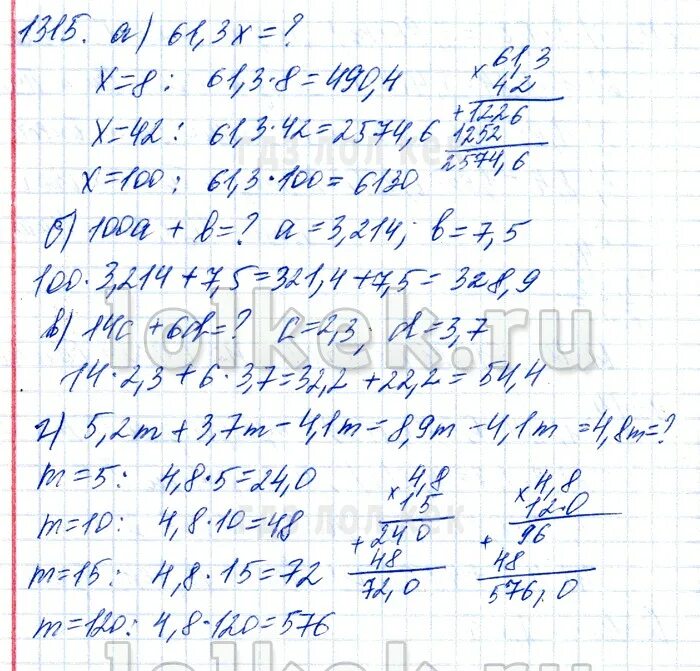 1315. а) 61,3x=?
x=8: 61,3·8=490,4
x=42: 61,3·42=2574,6
x=100: 61,3·100=6130
× 61,3
42
+1226
1252
2574,6
где лол кек
б) 100a + b=? a=3,214; b=7,5
100·3,214+7,5=321,4+7,5=328,9
lolkek.ru
в) 14c + 6d=? c=2,3; d=3,7
14·2,3+6·3,7=32,2+22,2=54,4
г) 5,2m+3,7m-4,1m=8,9m-4,1m=4,8m=?
m=5: 4,8·5=24,0
m=10: 4,8·10=48
m=15: 4,8·15=72
m=120: 4,8·120=576
× 4,8
15
+ 240
48
72,0
× 4,8
120
+ 96
48
576,0
где лол кек
lolkek.ru